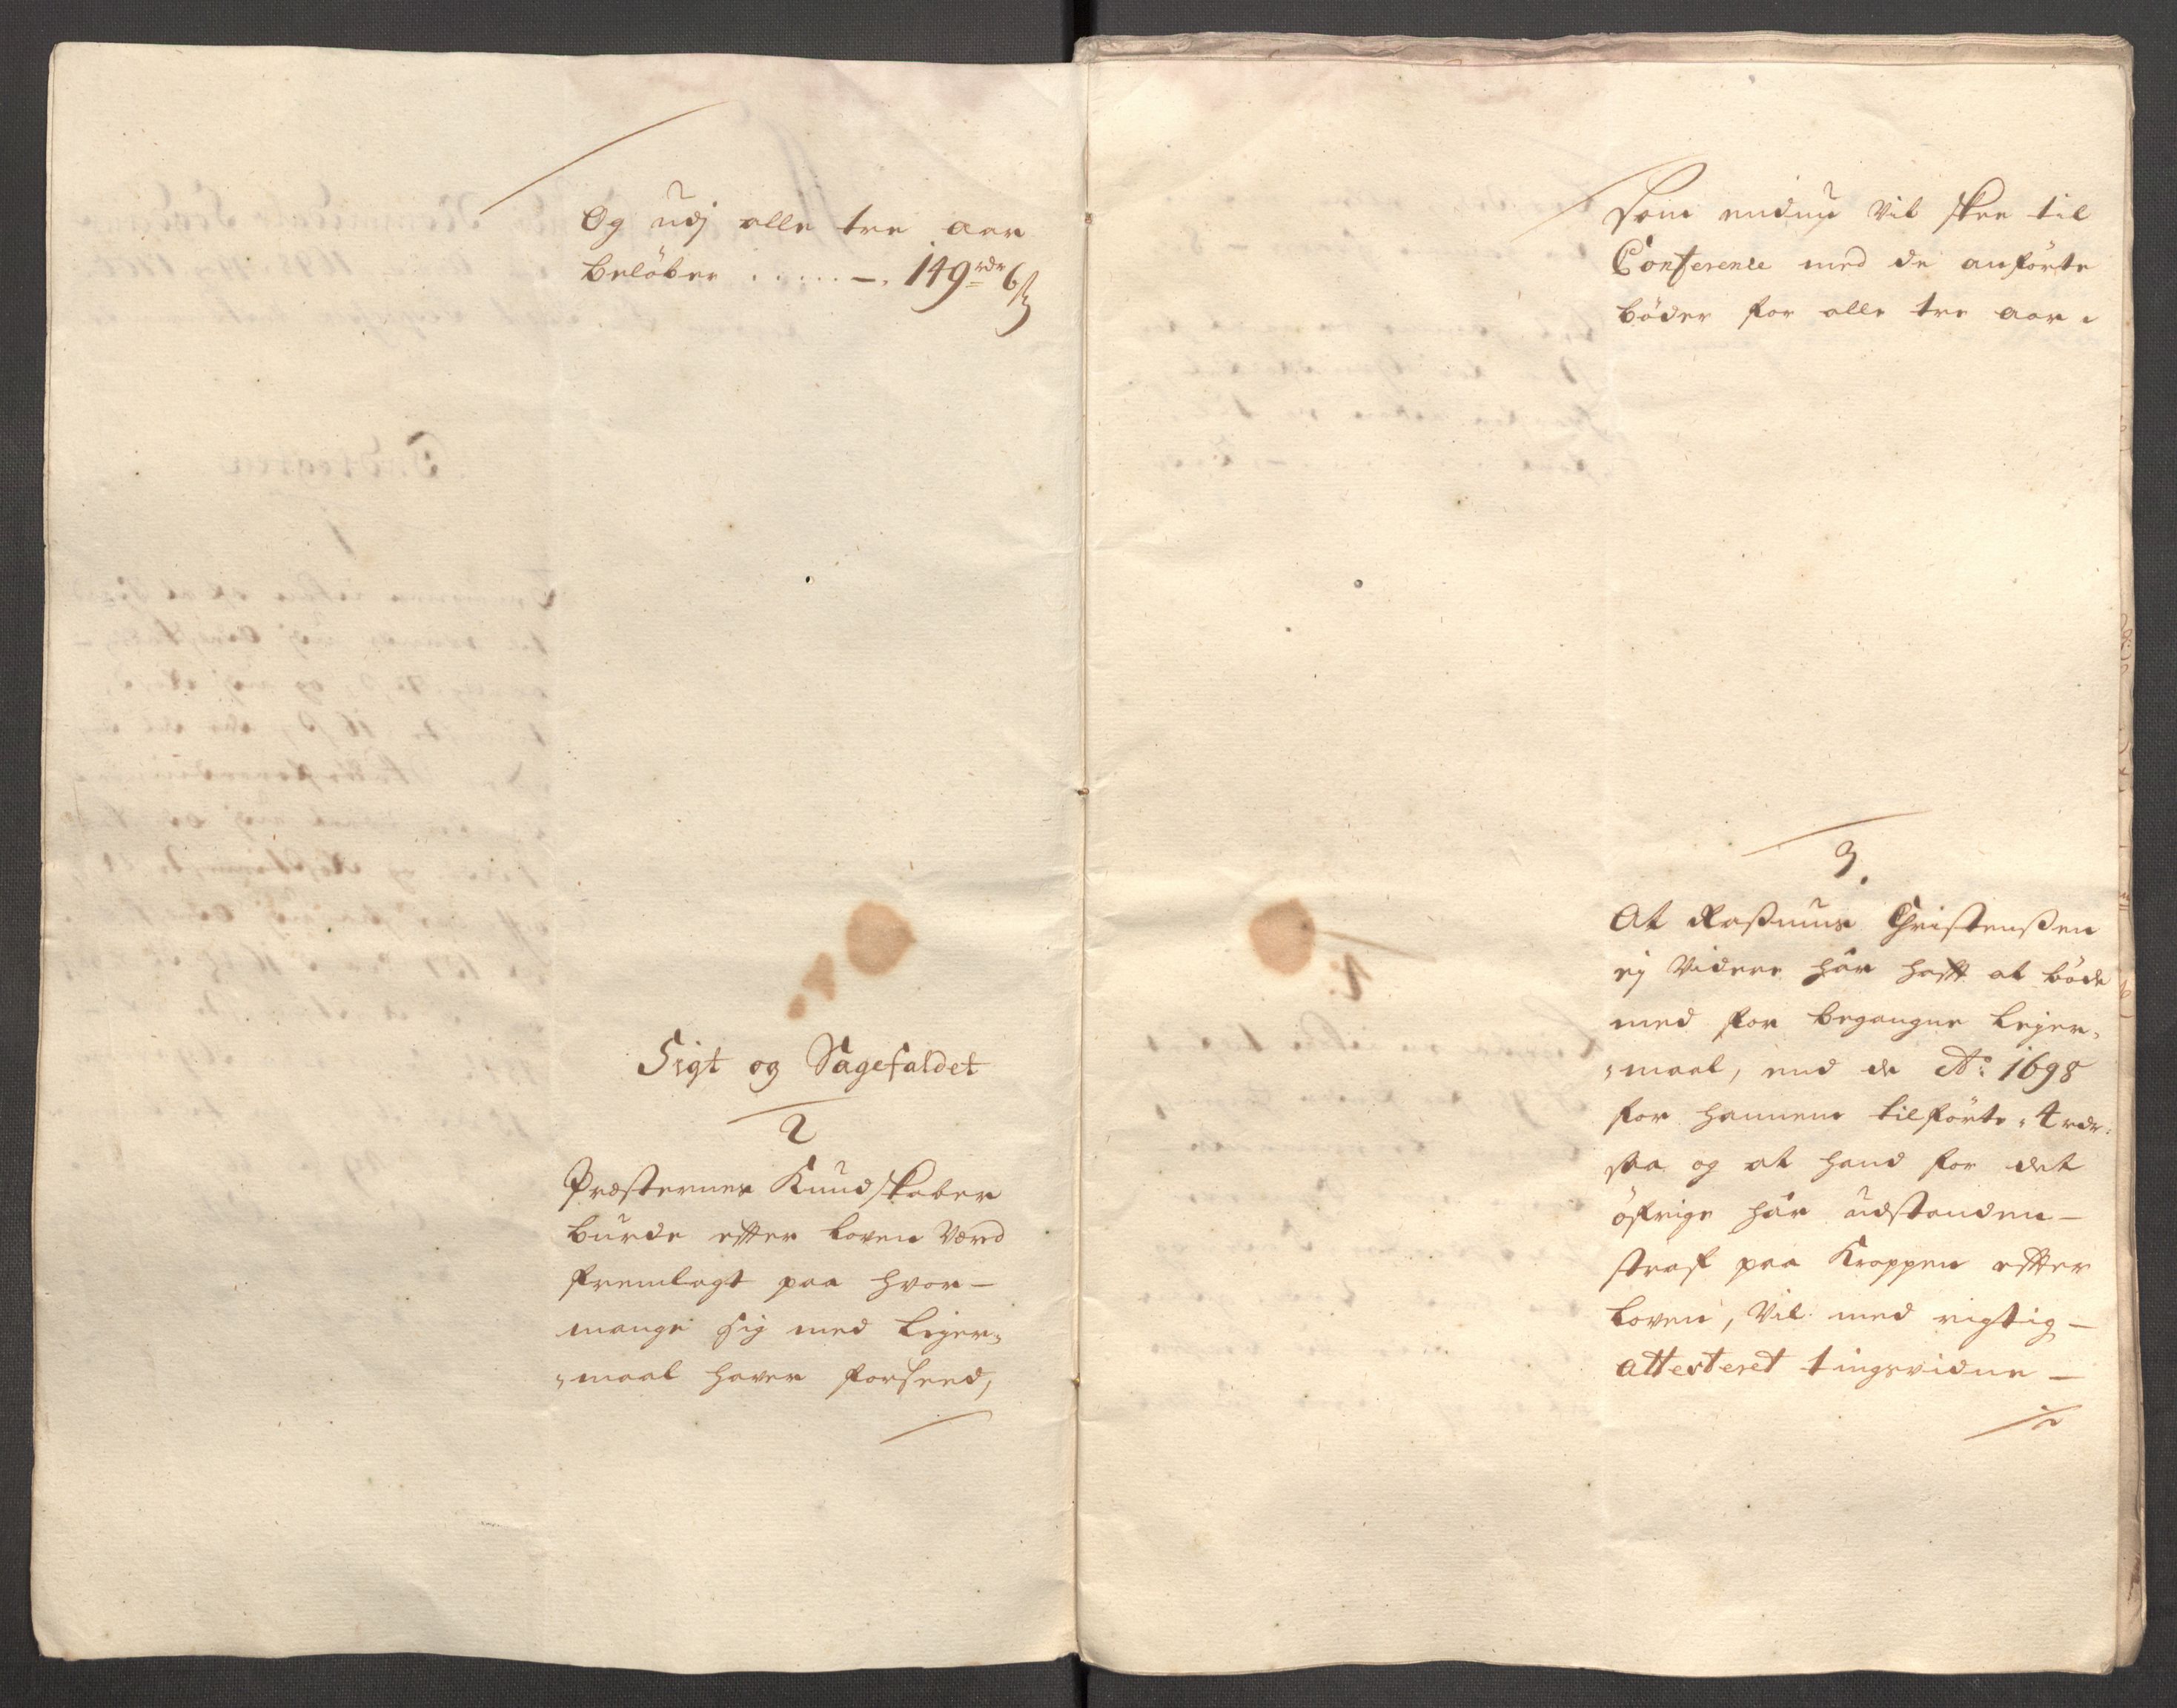 Og udj alle tre aar
beløber . . . . . . –. 149 rdr 6 ß
Sigt og Sagefaldet
2
Præsternes Kundskaber
burde effter loven værd
fremlagt paa hvor-
mange sig med leyer-
„maal haver forseed,
Som endnu vil skee til
Conference med de anførte
bøder for alle tre aar.
3.
At Rasmus Christensßen
ej videre hâr hafft at bøde
med for begangne leyer-
„maal, end de Ao: 1698
for hannem tilførte 4 rdr:
saa og at hand for det
øfrige hâr udstanden -
straf paa Kroppen effter
loven, vil med rigtig -
atterteret tingsvidne -